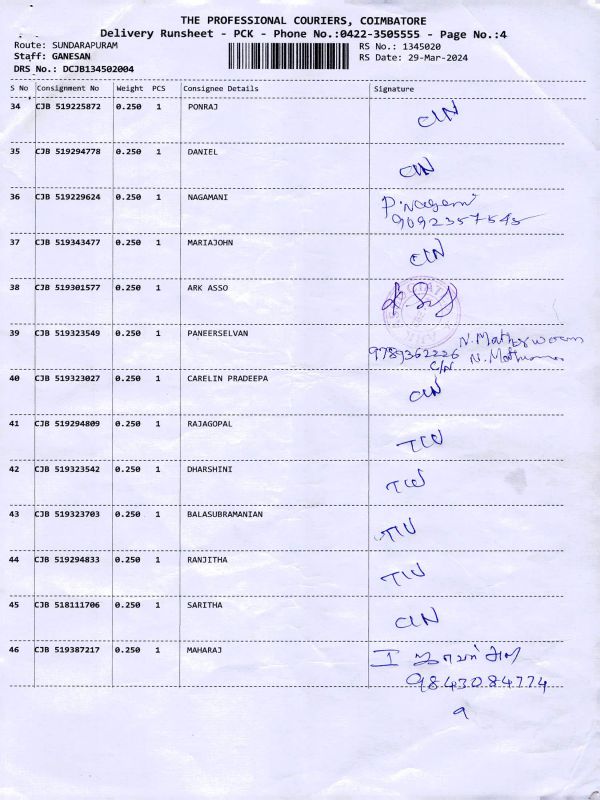 THE PROFESSIONAL COURIERS, COIMBATORE
Delivery Runsheet - PCK - Phone No.:0422-3505555 - Page No.:4
Route: SUNDARAPURAM RS No.: 1345020
Staff: GANESAN RS Date: 29-Mar-2024
DRS No.: DCJB134502004
S No Consignment No Weight PCS Consignee Details Signature
34 CJB 519225872 0.250 1 PONRAJ C/N
35 CJB 519294778 0.250 1 DANIEL C/N
36 CJB 519229624 0.250 1 NAGAMANI P.Nagamani
9092357545
37 CJB 519343477 0.250 1 MARIAJOHN C/N
38 CJB 519301577 0.250 1 ARK ASSO
39 CJB 519323549 0.250 1 PANEERSELVAN N.
9789362226 N.
C/N
40 CJB 519323027 0.250 1 CARELIN PRADEEPA C/N
41 CJB 519294809 0.250 1 RAJAGOPAL TCN
42 CJB 519323542 0.250 1 DHARSHINI TCN
43 CJB 519323703 0.250 1 BALASUBRAMANIAN
44 CJB 519294833 0.250 1 RANJITHA
45 CJB 518111706 0.250 1 SARITHA C/N
46 CJB 519387217 0.250 1 MAHARAJ
9843084774
9